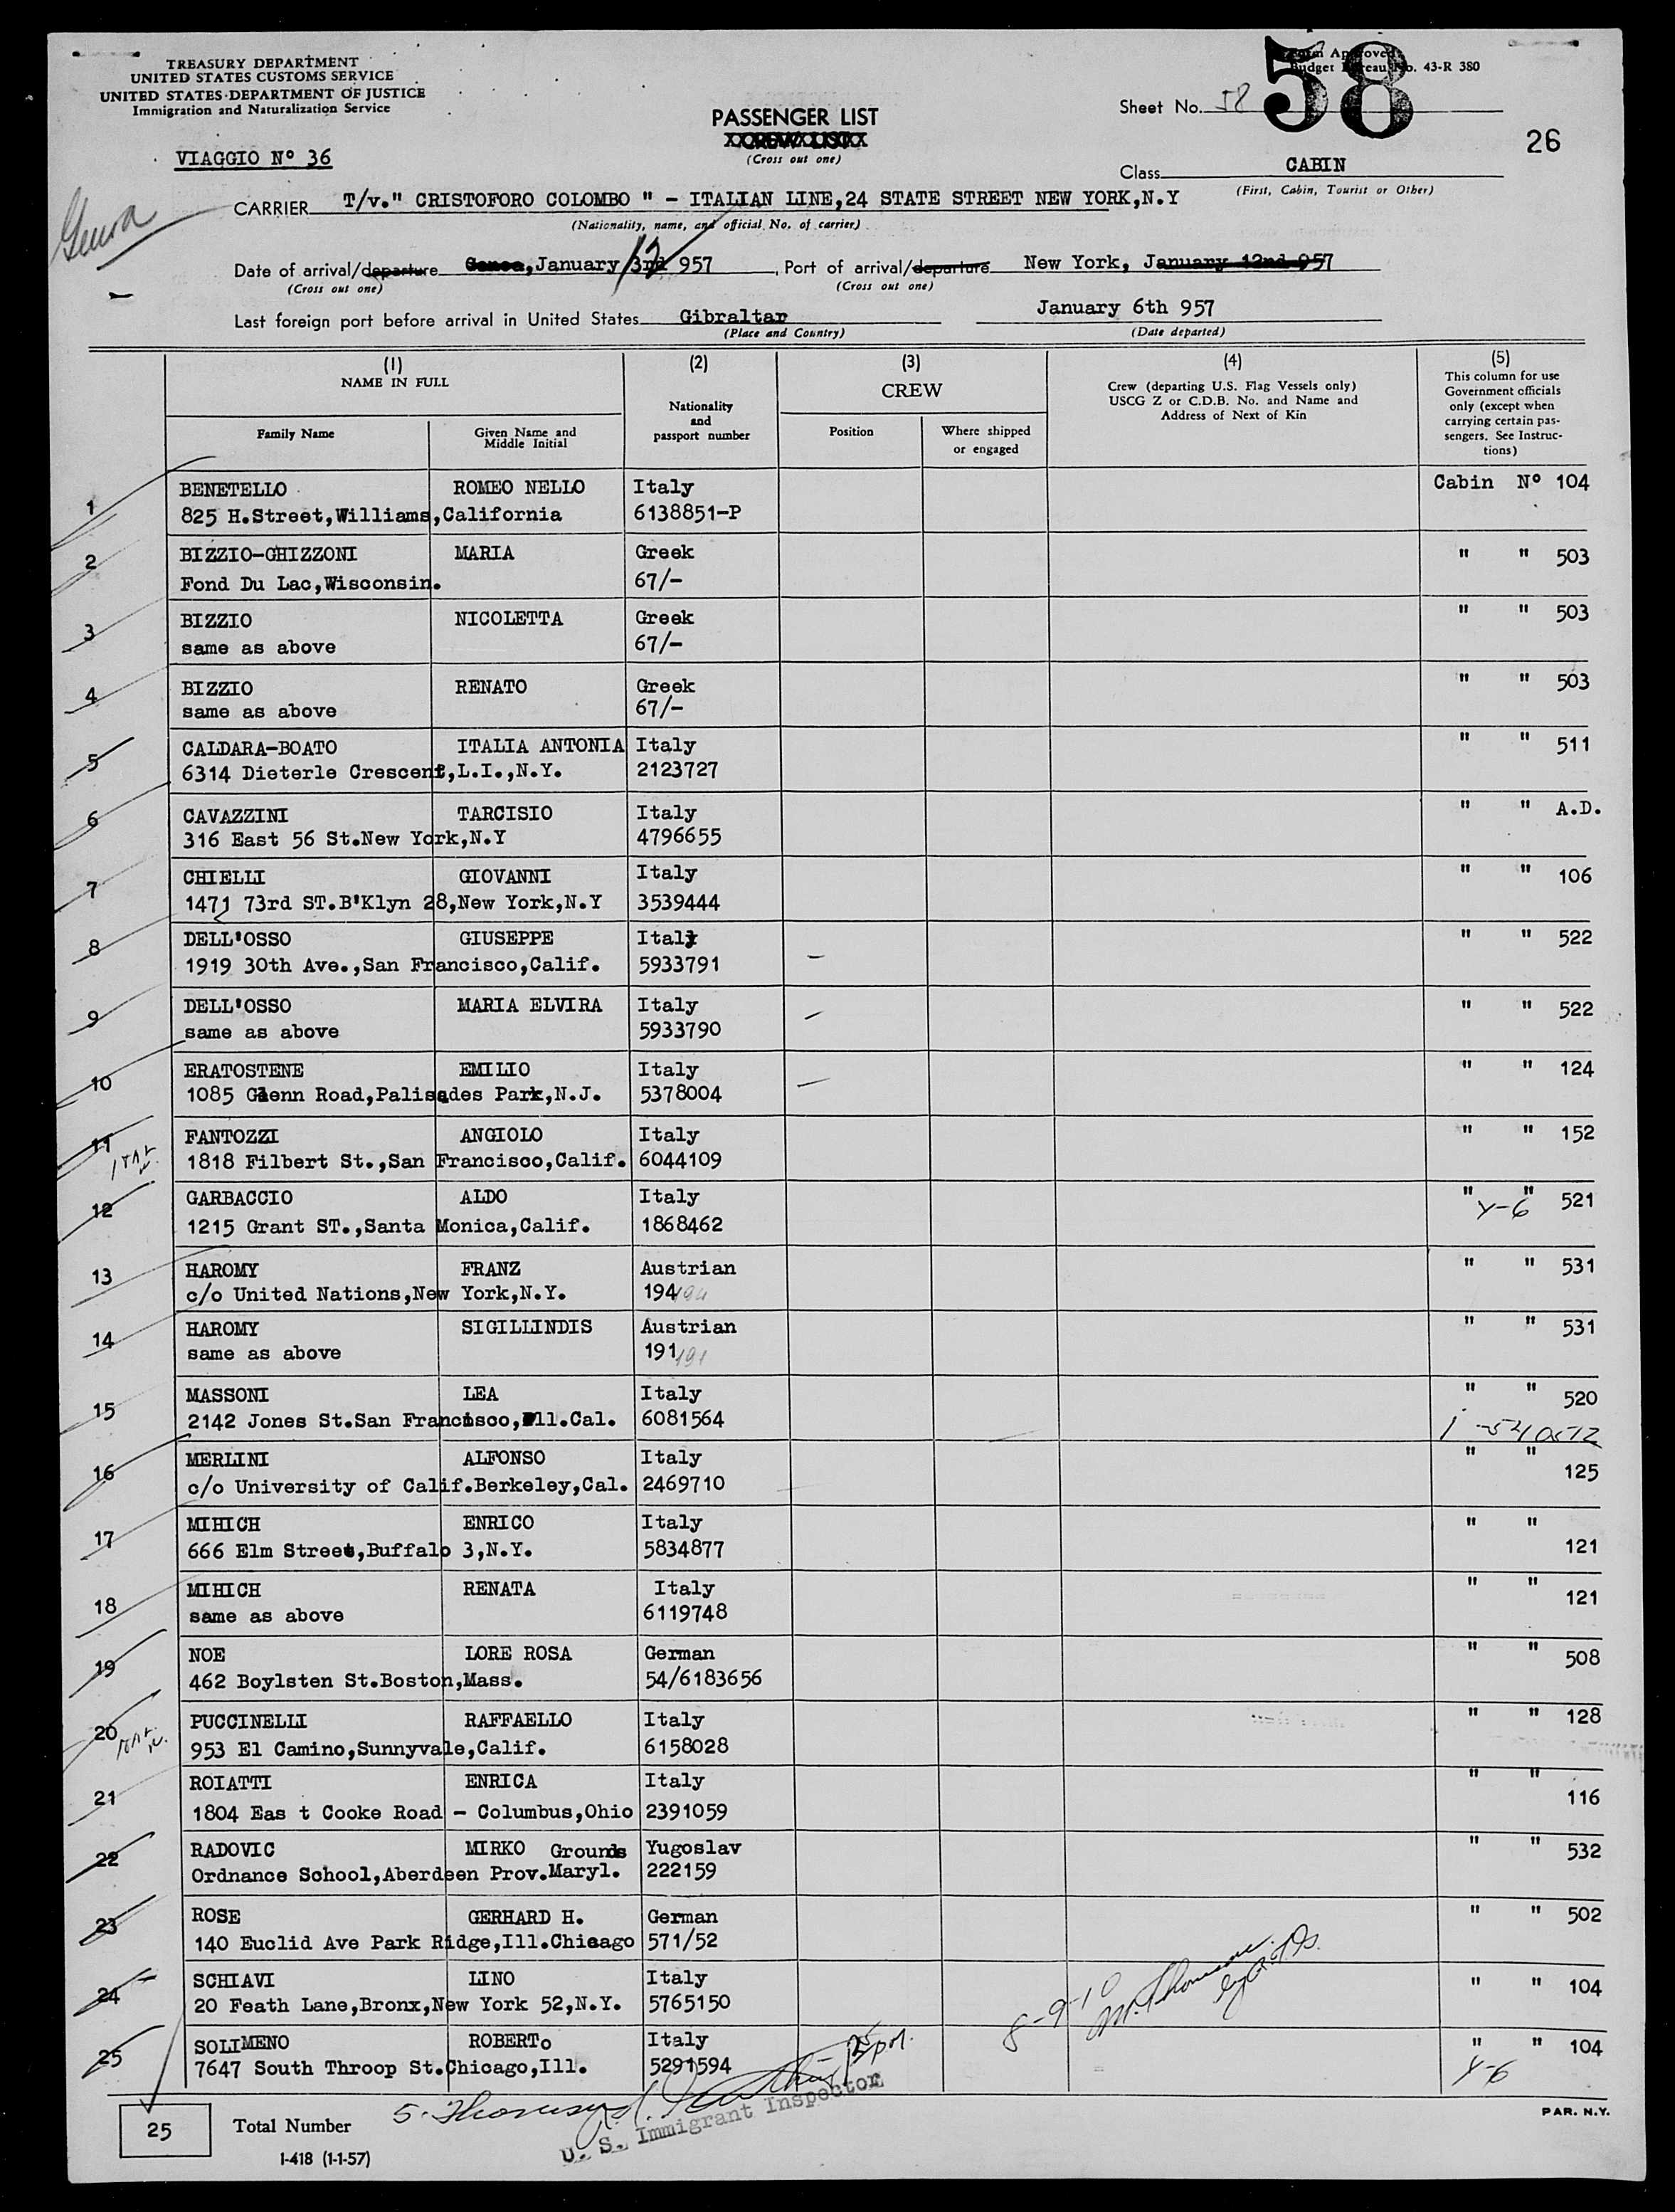 TREASURY DEPARTMENT
UNITED STATES CUSTOMS SERVICE
UNITED STATES DEPARTMENT OF JUSTICE
Immigration and Naturalization Service
Form Approved
Budget Bureau No. 43-R 380
58
Sheet No. 58
26
PASSENGER LIST
CREW LIST
(Cross out one)
VIAGGIO Nº 36
Class CABIN
(First, Cabin, Tourist or Other)
Genoa
CARRIER T/v." CRISTOFORO COLOMBO " - ITALIAN LINE,24 STATE STREET NEW YORK,N.Y
(Nationality, name, and official No. of carrier)
Date of arrival/departure Genoa,January 3rd 12 957, Port of arrival/departure New York, January 12nd 957
(Cross out one) (Cross out one)
Last foreign port before arrival in United States Gibraltar January 6th 957
(Place and Country) (Date departed)
(1) NAME IN FULL
Family Name
Given Name and Middle Initial
(2)
Nationality and passport number
(3)
CREW
Position
Where shipped or engaged
(4)
Crew (departing U.S. Flag Vessels only)
USCG Z or C.D.B. No. and Name and
Address of Next of Kin
(5)
This column for use
Government officials
only (except when
carrying certain pas-
sengers. See Instruc-
tions)
1 BENETELLO ROMEO NELLO Italy Cabin Nº 104
825 H.Street,Williams,California 6138851-P
2 BIZZIO-GHIZZONI MARIA Greek " " 503
Fond Du Lac,Wisconsin. 67/-
3 BIZZIO NICOLETTA Greek " " 503
same as above 67/-
4 BIZZIO RENATO Greek " " 503
same as above 67/-
5 CALDARA-BOATO ITALIA ANTONIA Italy " " 511
6314 Dieterle Crescent,L.I.,N.Y. 2123727
6 CAVAZZINI TARCISIO Italy " " A.D.
316 East 56 St.New York,N.Y 4796655
7 CHIELLI GIOVANNI Italy " " 106
1471 73rd ST.B'Klyn 28,New York,N.Y 3539444
8 DELL'OSSO GIUSEPPE Italy " " 522
1919 30th Ave.,San Francisco,Calif. 5933791
9 DELL'OSSO MARIA ELVIRA Italy " " 522
same as above 5933790
10 ERATOSTENE EMILIO Italy " " 124
1085 Glenn Road,Palisades Park,N.J. 5378004
11 FANTOZZI ANGIOLO Italy " " 152
1818 Filbert St.,San Francisco,Calif. 6044109
12 GARBACCIO ALDO Italy " " 521
1215 Grant ST.,Santa Monica,Calif. 1868462 Y-6
13 HAROMY FRANZ Austrian " " 531
c/o United Nations,New York,N.Y. 194 194
14 HAROMY SIGILLINDIS Austrian " " 531
same as above 191 191
15 MASSONI LEA Italy " " 520
2142 Jones St.San Francisco,Ill.Cal. 6081564
16 MERLINI ALFONSO Italy " " 125
c/o University of Calif.Berkeley,Cal. 2469710
17 MIHICH ENRICO Italy " " 121
666 Elm Street,Buffalo 3,N.Y. 5834877
18 MIHICH RENATA Italy " " 121
same as above 6119748
19 NOE LORE ROSA German " " 508
462 Boylsten St.Boston,Mass. 54/6183656
20 PUCCINELLI RAFFAELLO Italy " " 128
953 El Camino,Sunnyvale,Calif. 6158028
21 ROIATTI ENRICA Italy " " 116
1804 Eas t Cooke Road - Columbus,Ohio 2391059
22 RADOVIC MIRKO Grounds Yugoslav " " 532
Ordnance School,Aberdeen Prov.Maryl. 222159
23 ROSE GERHARD H. German " " 502
140 Euclid Ave Park Ridge,Ill.Chicago 571/52
24 SCHIAVI LINO Italy " " 104
20 Feath Lane,Bronx,New York 52,N.Y. 5765150
8-9-10
25 SOLIMENO ROBERTo Italy " " 104
7647 South Throop St.Chicago,Ill. 5291594 Y-6
25 Total Number
U. S. Immigrant Inspector
PAR. N.Y.
I-418 (1-1-57)